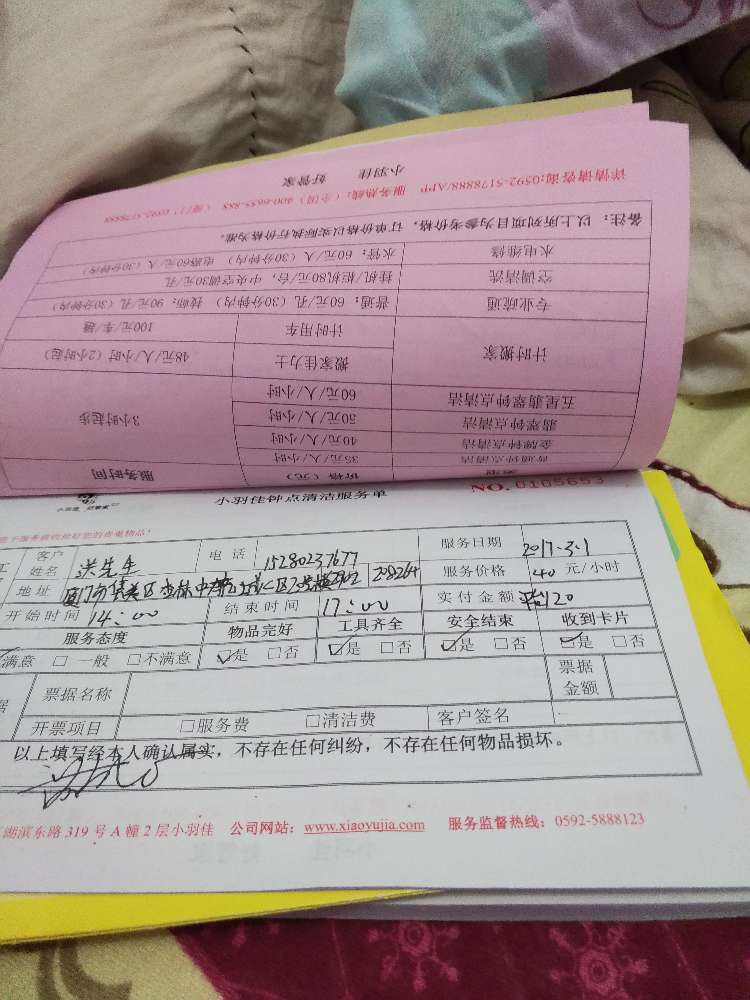 详情请咨询:0592-5178888/APP 服务热线:(全国) 400-6655-888 (厦门) 0592-5178888
小羽佳 好管家
备注:以上所列项目为参考价格,订单价格以实际执行价格为准。
水电维修 水管:60元/人(30分钟内) 电路60元/人(30分钟内)
空调清洗 挂机/柜机80元/台,中央空调30元/孔
专业疏通 普通:60元/孔(30分钟内) 技师:90元/孔(30分钟内)
计时用车 100元/车/趟
计时搬家 搬家佳力士 48元/人/小时(2小时起)
五星翡翠钟点清洁 60元/人/小时
翡翠钟点清洁 50元/人/小时 3小时起步
金牌钟点清洁 40元/人/小时
普通钟点清洁 35元/人/小时
价格(元) 服务时间
小羽佳 好管家
小羽佳钟点清洁服务单 NO.0105653
客户姓名 洪先生 电话 15280237677 服务日期 2017.3.1
地址 厦门市集美区杏林 208264 服务价格 40 元/小时
开始时间 14:00 结束时间 17:00 实付金额 120
服务态度 物品完好 工具齐全 安全结束 收到卡片
满意 □ 一般 □不满意 ☑是 □否 ☑是 □否 ☑是 □否 ☑是 □否
票据名称 票据金额
开票项目 □服务费 □清洁费 客户签名
以上填写经本人确认属实,不存在任何纠纷,不存在任何物品损坏。
湖滨东路319号A幢2层小羽佳 公司网站:www.xiaoyujia.com 服务监督热线:0592-5888123